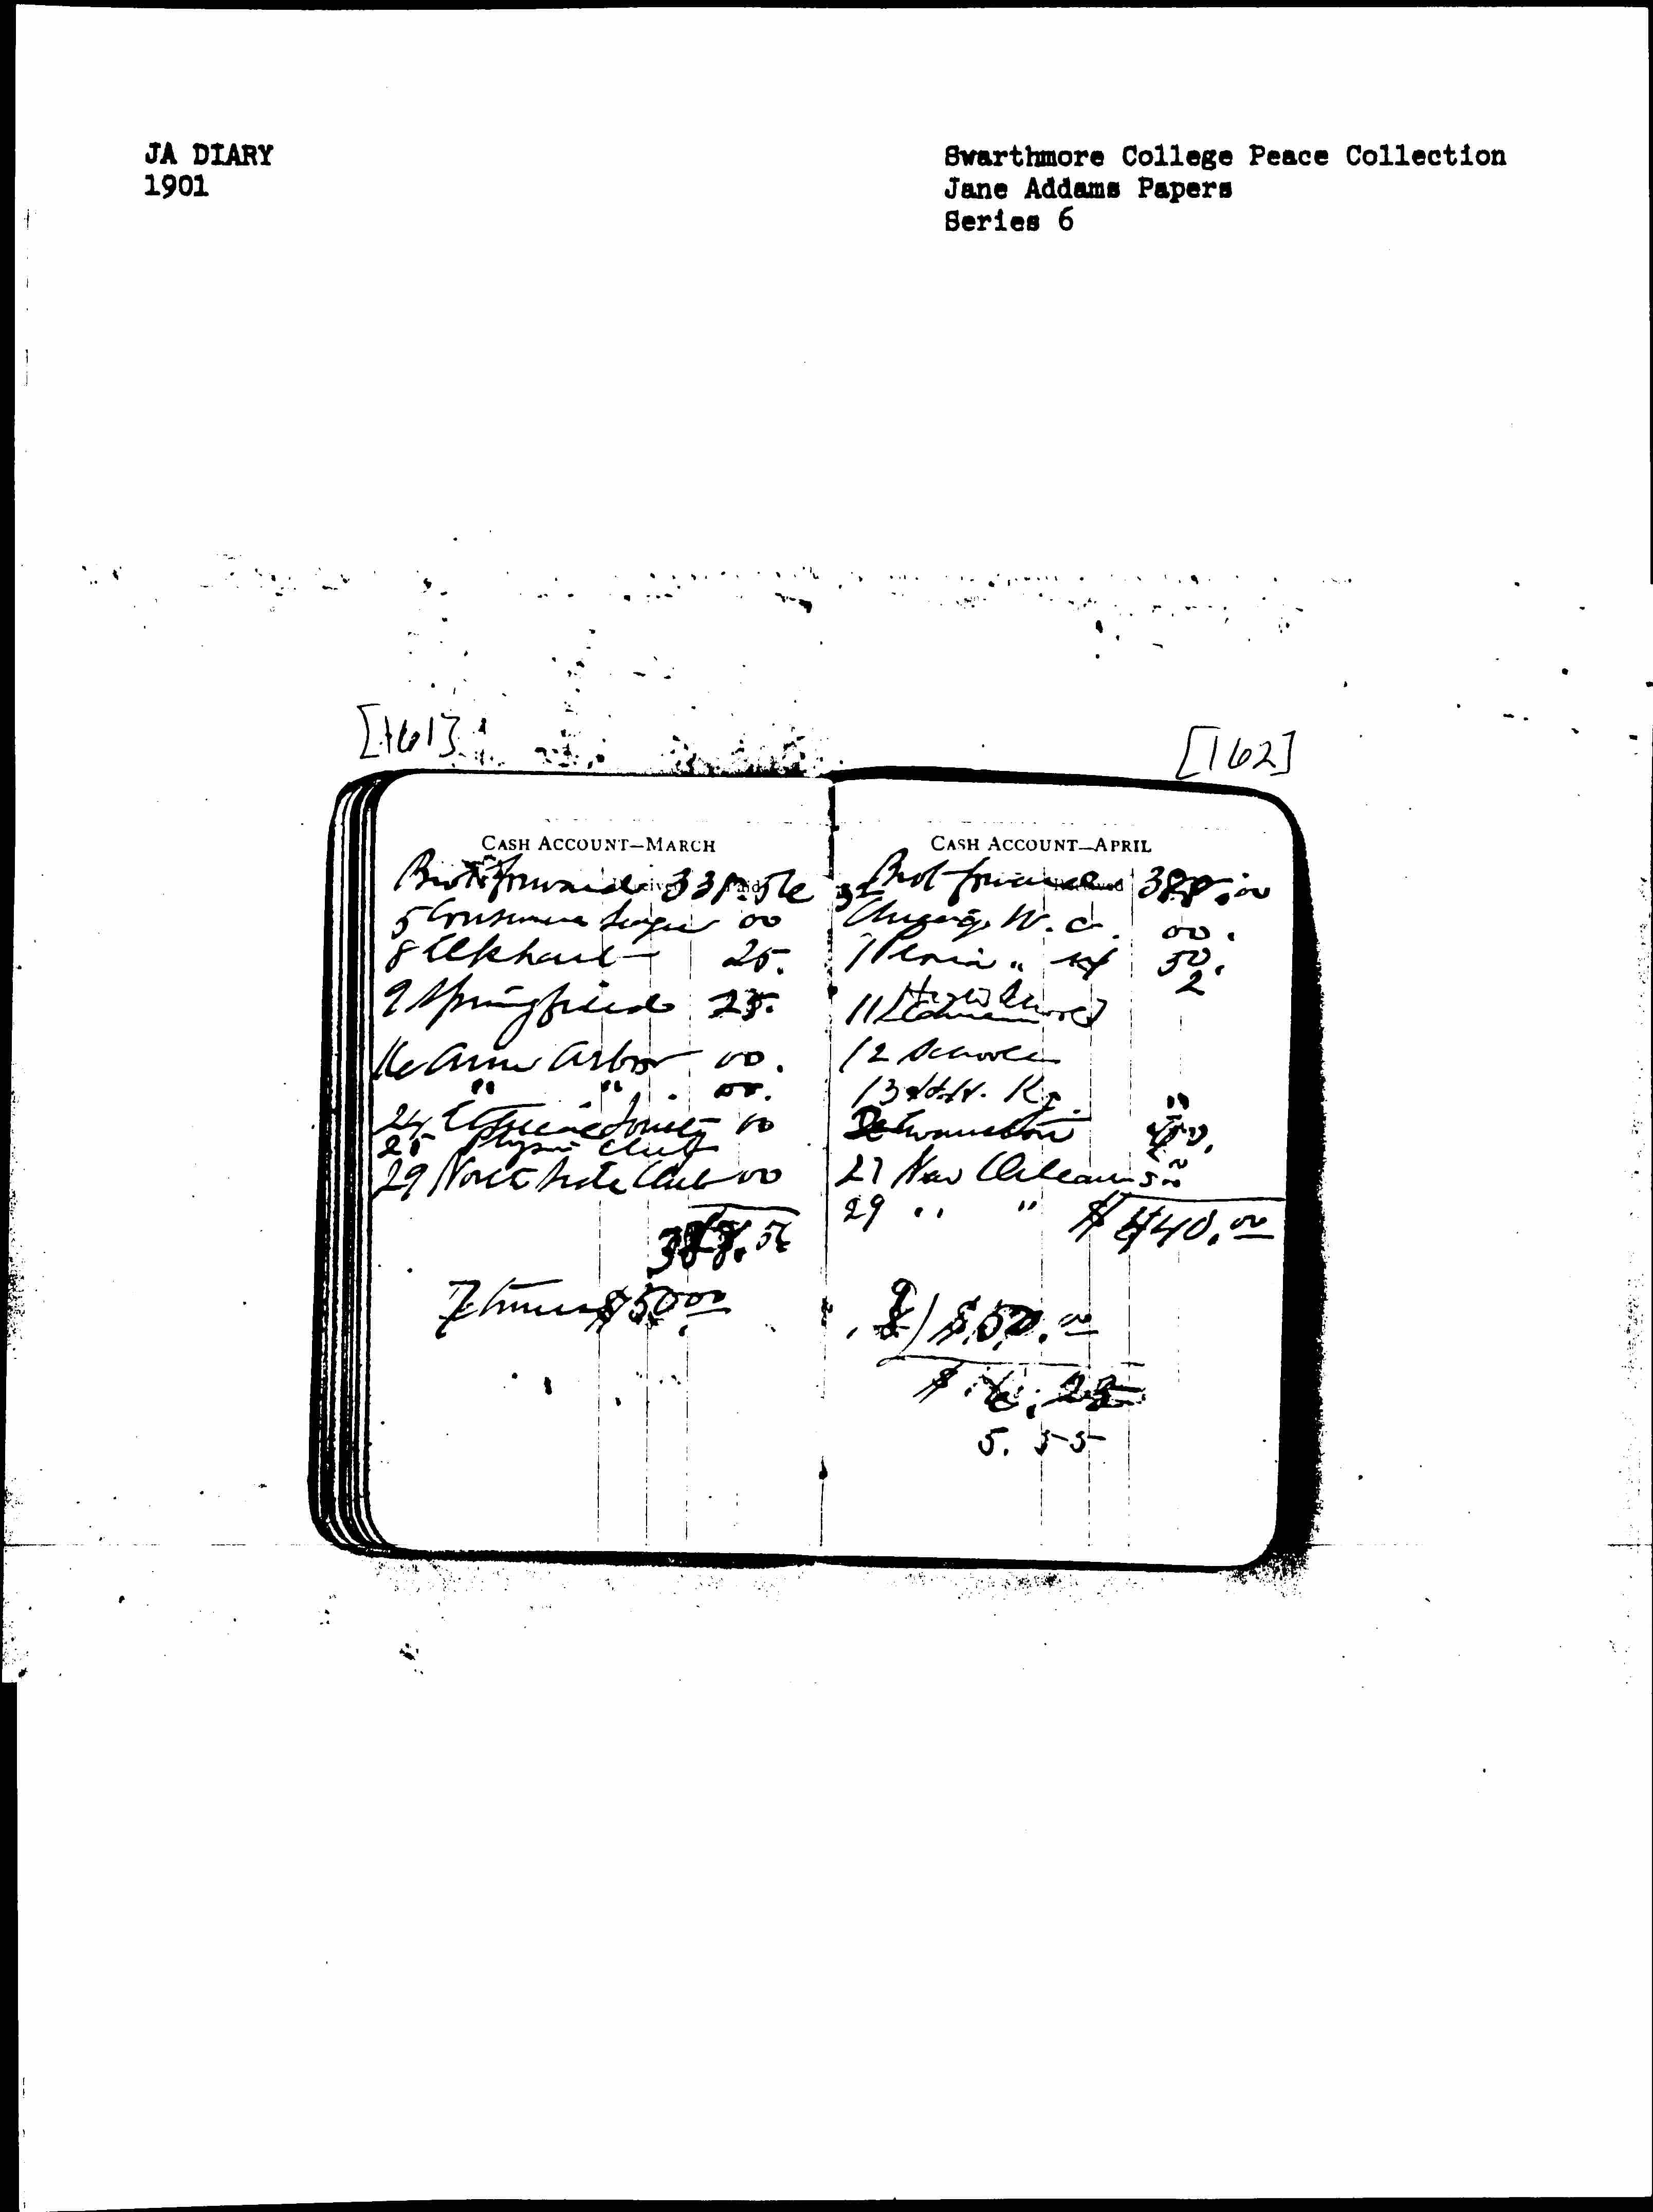 JA DIARY
1901
Swarthmore College Peace Collection
Jane Addams Papers
Series 6
[161]
[162]
CASH ACCOUNT—MARCH
Brot forward 338.56
5 Consumers League 00
8 Elkhart 25.
9 Springfield 25.
16 Ann Arbor 00.
" " 00.
24 Society 00
25 Club
29 North Side Club 00
388.56
7 times $50.00
CASH ACCOUNT—APRIL
Brot forward 388.00
Chicago W. C. 00.
7 Peoria " 50.
2
11
12 School
13
Evanston
27 New Orleans
29 " "
$440.00
9) $50.00
5.55